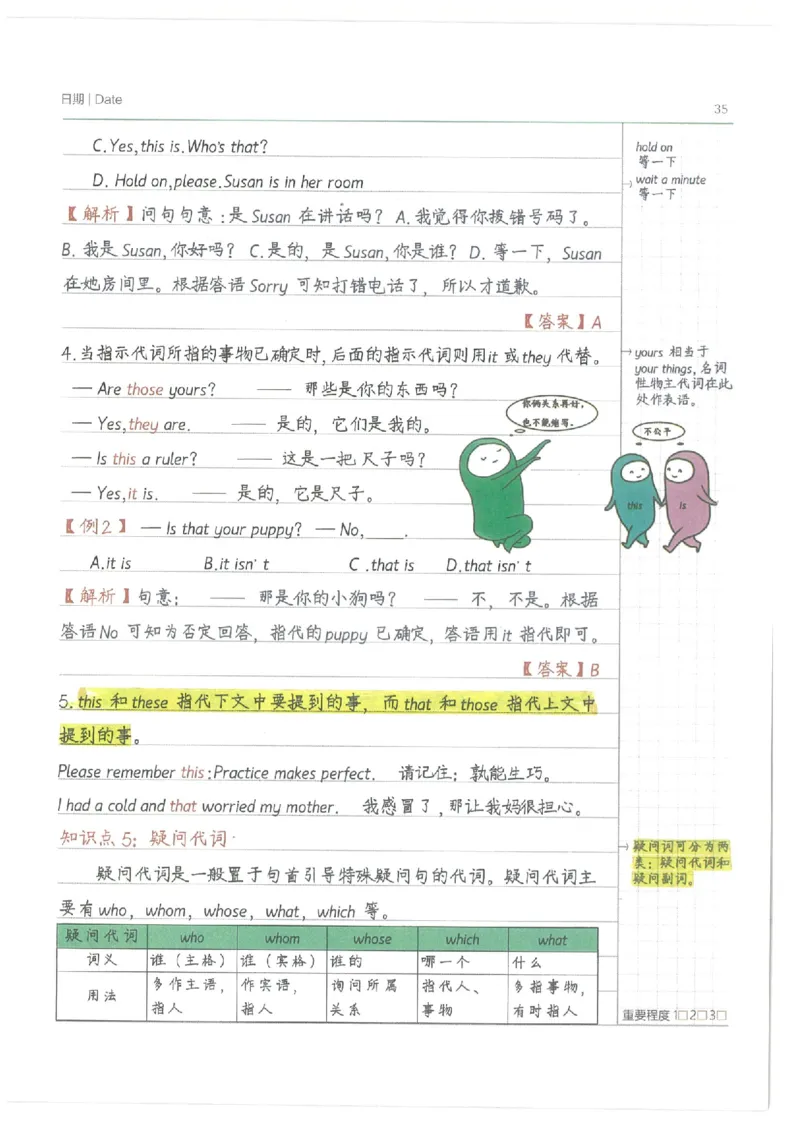 日期 | Date
35
C.Yes,this is.Who's that?
D. Hold on,please.Susan is in her room
【解析】问句句意:是 Susan 在讲话吗? A.我觉得你拨错号码了。
B. 我是 Susan,你好吗? C.是的, 是 Susan,你是谁? D. 等一下, Susan
在她房间里。根据答语 Sorry 可知打错电话了, 所以才道歉。
【答案】A
4.当指示代词所指的事物已确定时,后面的指示代词则用it 或they 代替。
— Are those yours? —— 那些是你的东西吗?
— Yes,they are. —— 是的, 它们是我的。
— Is this a ruler? —— 这是一把尺子吗?
— Yes,it is. —— 是的, 它是尺子。
【例2】 — Is that your puppy? — No,____.
A.it is B.it isn't C .that is D.that isn't
【解析】句意: —— 那是你的小狗吗? —— 不, 不是。根据
答语No 可知为否定回答, 指代的puppy 已确定, 答语用it 指代即可。
【答案】B
5.this 和 these 指代下文中要提到的事, 而 that 和 those 指代上文中
提到的事。
Please remember this:Practice makes perfect. 请记住: 孰能生巧。
I had a cold and that worried my mother. 我感冒了,那让我妈很担心。
知识点 5: 疑问代词·
疑问代词是一般置于句首引导特殊疑问句的代词。疑问代词主
要有who, whom, whose, what, which 等。
疑问代词 who whom whose which what
词义 谁(主格) 谁(宾格) 谁的 哪一个 什么
用法 多作主语, 作宾语, 询问所属 指代人、 多指事物,
指人 指人 关系 事物 有时指人
hold on
等一下
wait a minute
等一下
yours 相当于
your things,名词
性物主代词在此
处作表语。
你俩关系再好,
也不能缩写。
不公平
this
is
疑问词可分为两
类: 疑问代词和
疑问副词。
重要程度 1□2□3□